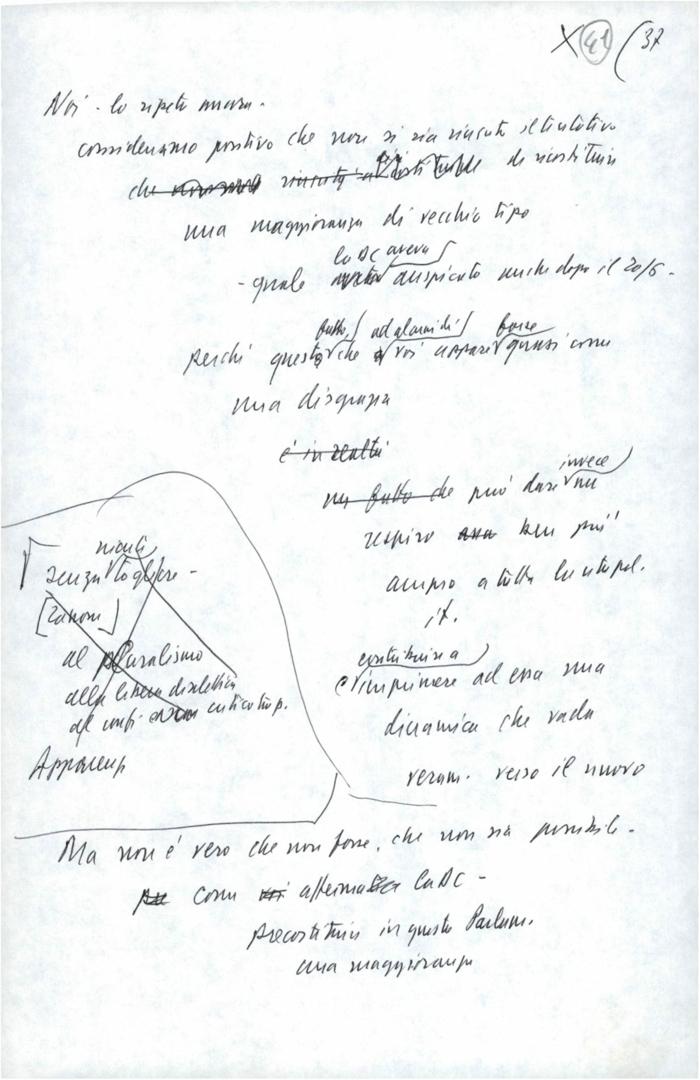 X 41 (37
Noi - lo ripeto ancora -
consideriamo positivo che non si sia riuscito il tentativo
che riuscito di ricostituire
una maggioranza di vecchio tipo
la DC aveva
- quale auspicato anche dopo il 20/6 -
fatto ad alcuni di forse
perché questo che voi appare quasi come
una disgrazia
è in realtà
invece
un fatto che può dare un
respiro ben più
ampio a tutta la vita pol.
it.
contribuire a
e imprimere ad essa una
dinamica che vada
veram. verso il nuovo
nulla
senza togliere -
[Zanone]
al pluralismo
alla libera dialettica
al confr.
Ma non è vero che non fosse, che non sia possibile -
come afferma la DC -
precostituire in questo Parlam.
una maggioranza